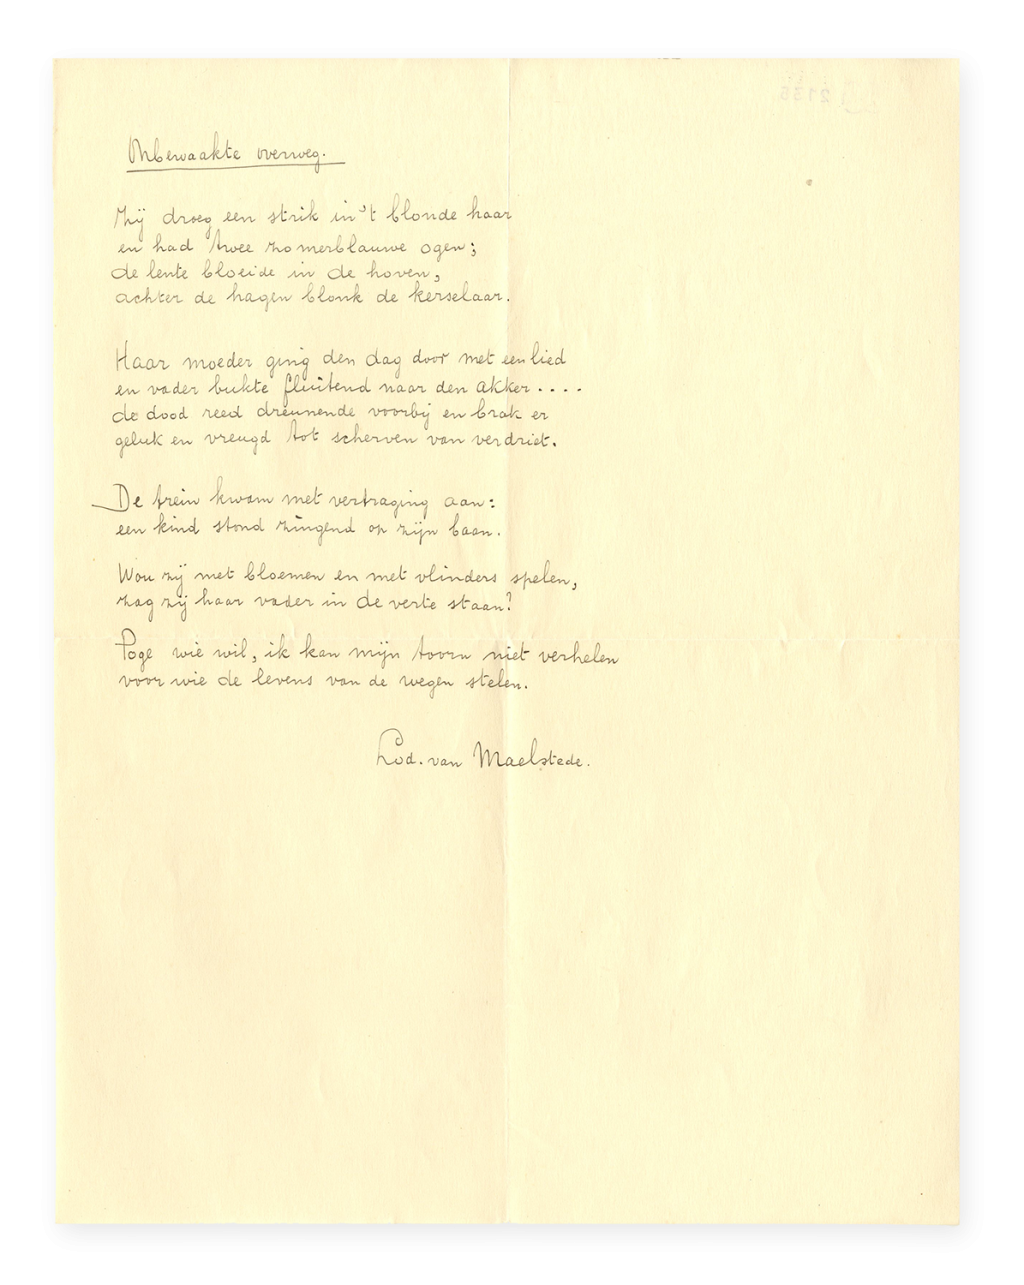 Onbewaakte overweg.
Zij droeg een strik in 't blonde haar
en had twee zomerblauwe ogen;
de lente bloeide in de hoven,
achter de hagen blonk de kerselaar.
Haar moeder ging den dag door met een lied
en vader bukte fluitend naar den akker....
de dood reed dreunende voorbij en brak er
geluk en vreugd tot scherven van verdriet.
De trein kwam met vertraging aan:
een kind stond zingend op zijn baan.
Wou zij met bloemen en met vlinders spelen,
zag zij haar vader in de verte staan?
Poge wie wil, ik kan mijn toorn niet verhelen
voor wie de levens van de wegen stelen.
Lod. van Maelstede.